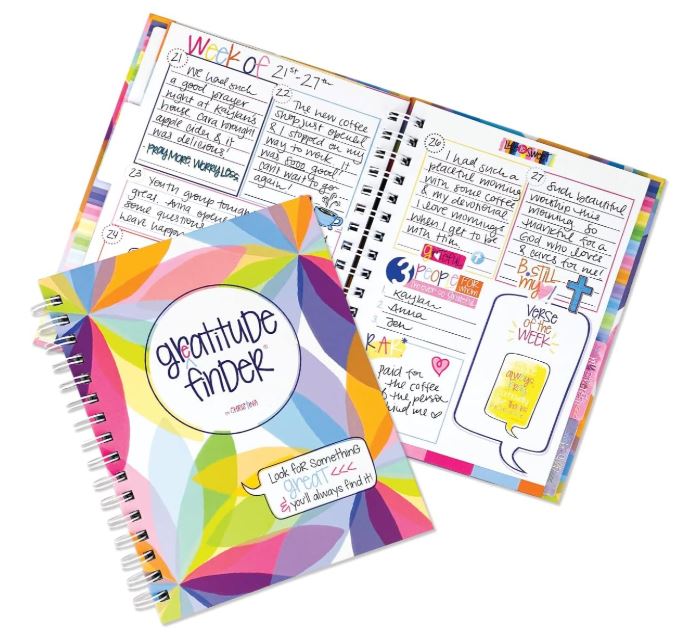 Week of 21st-27th
21
We had such
a good prayer
night at Kaylan's
house. Cara brought
apple cider & it
was delicious!
PRAY MORE. WORRY LESS.
22
The new coffee
shop just opened
& I stopped on my
way to work. It
was sooo good!
Can't wait to go
again!
23
Youth group tonight
great. Anna opened
some questions
24
26
I had such a
peaceful morning
with some coffee
& my devotional.
I love mornings
when I get to be
with Him.
grateful
27
Such beautiful
worship this
morning. So
thankful for a
God who loves
& cares for me!
B STILL
my
3 PEOPLE FOR whom
I'm ever so grateful
1. Kaylan
2. Anna
3. Jen
RA
Paid for
the coffee
of the person
hind me
VERSE
OF THE
WEEK
always
gratitude
finder
BY CHRISTINA
Look for something
great <<<
& you'll always find it!